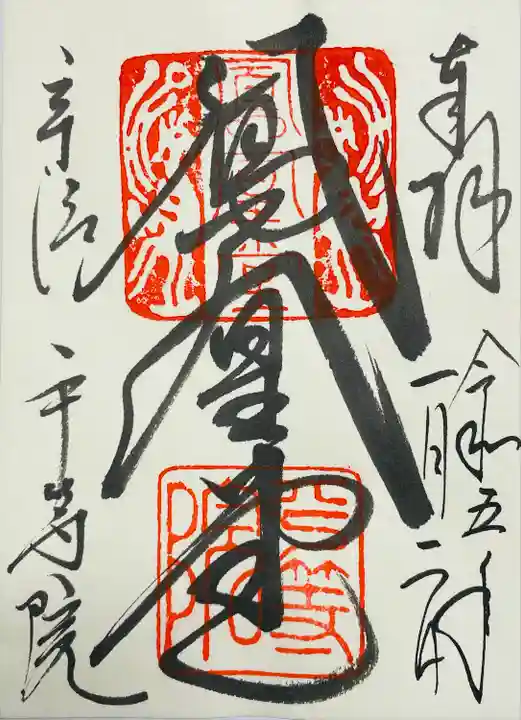 奉拝
令和五年
一月二日
鳳凰堂
宇治
平等院
平等
院